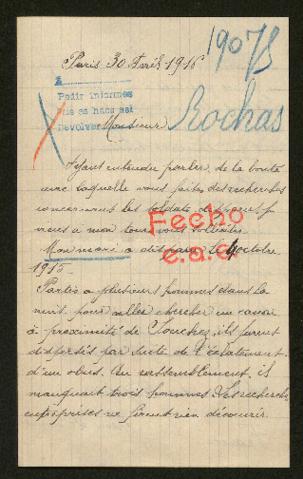 Paris 30 Avril 1916
1907S
A
Pedir informes
que se haga así
Devolver
Rochas
Monsieur
Ayant entendu parler de la bonté
avec laquelle vous faites des recherches
concernant les soldats disparus je
viens à mon tour vous solliciter.
Fecho
e.a.e.
Mon mari a disparu le 4 octobre
1915
Partis à plusieurs hommes dans la
nuit pour aller chercher un canon
à proximité de Souchez, ils furent
dispersés par suite de l'éclatement
d'un obus. Au rassemblement, il
manquait trois hommes. Les recherches
entreprises ne firent rien découvrir.